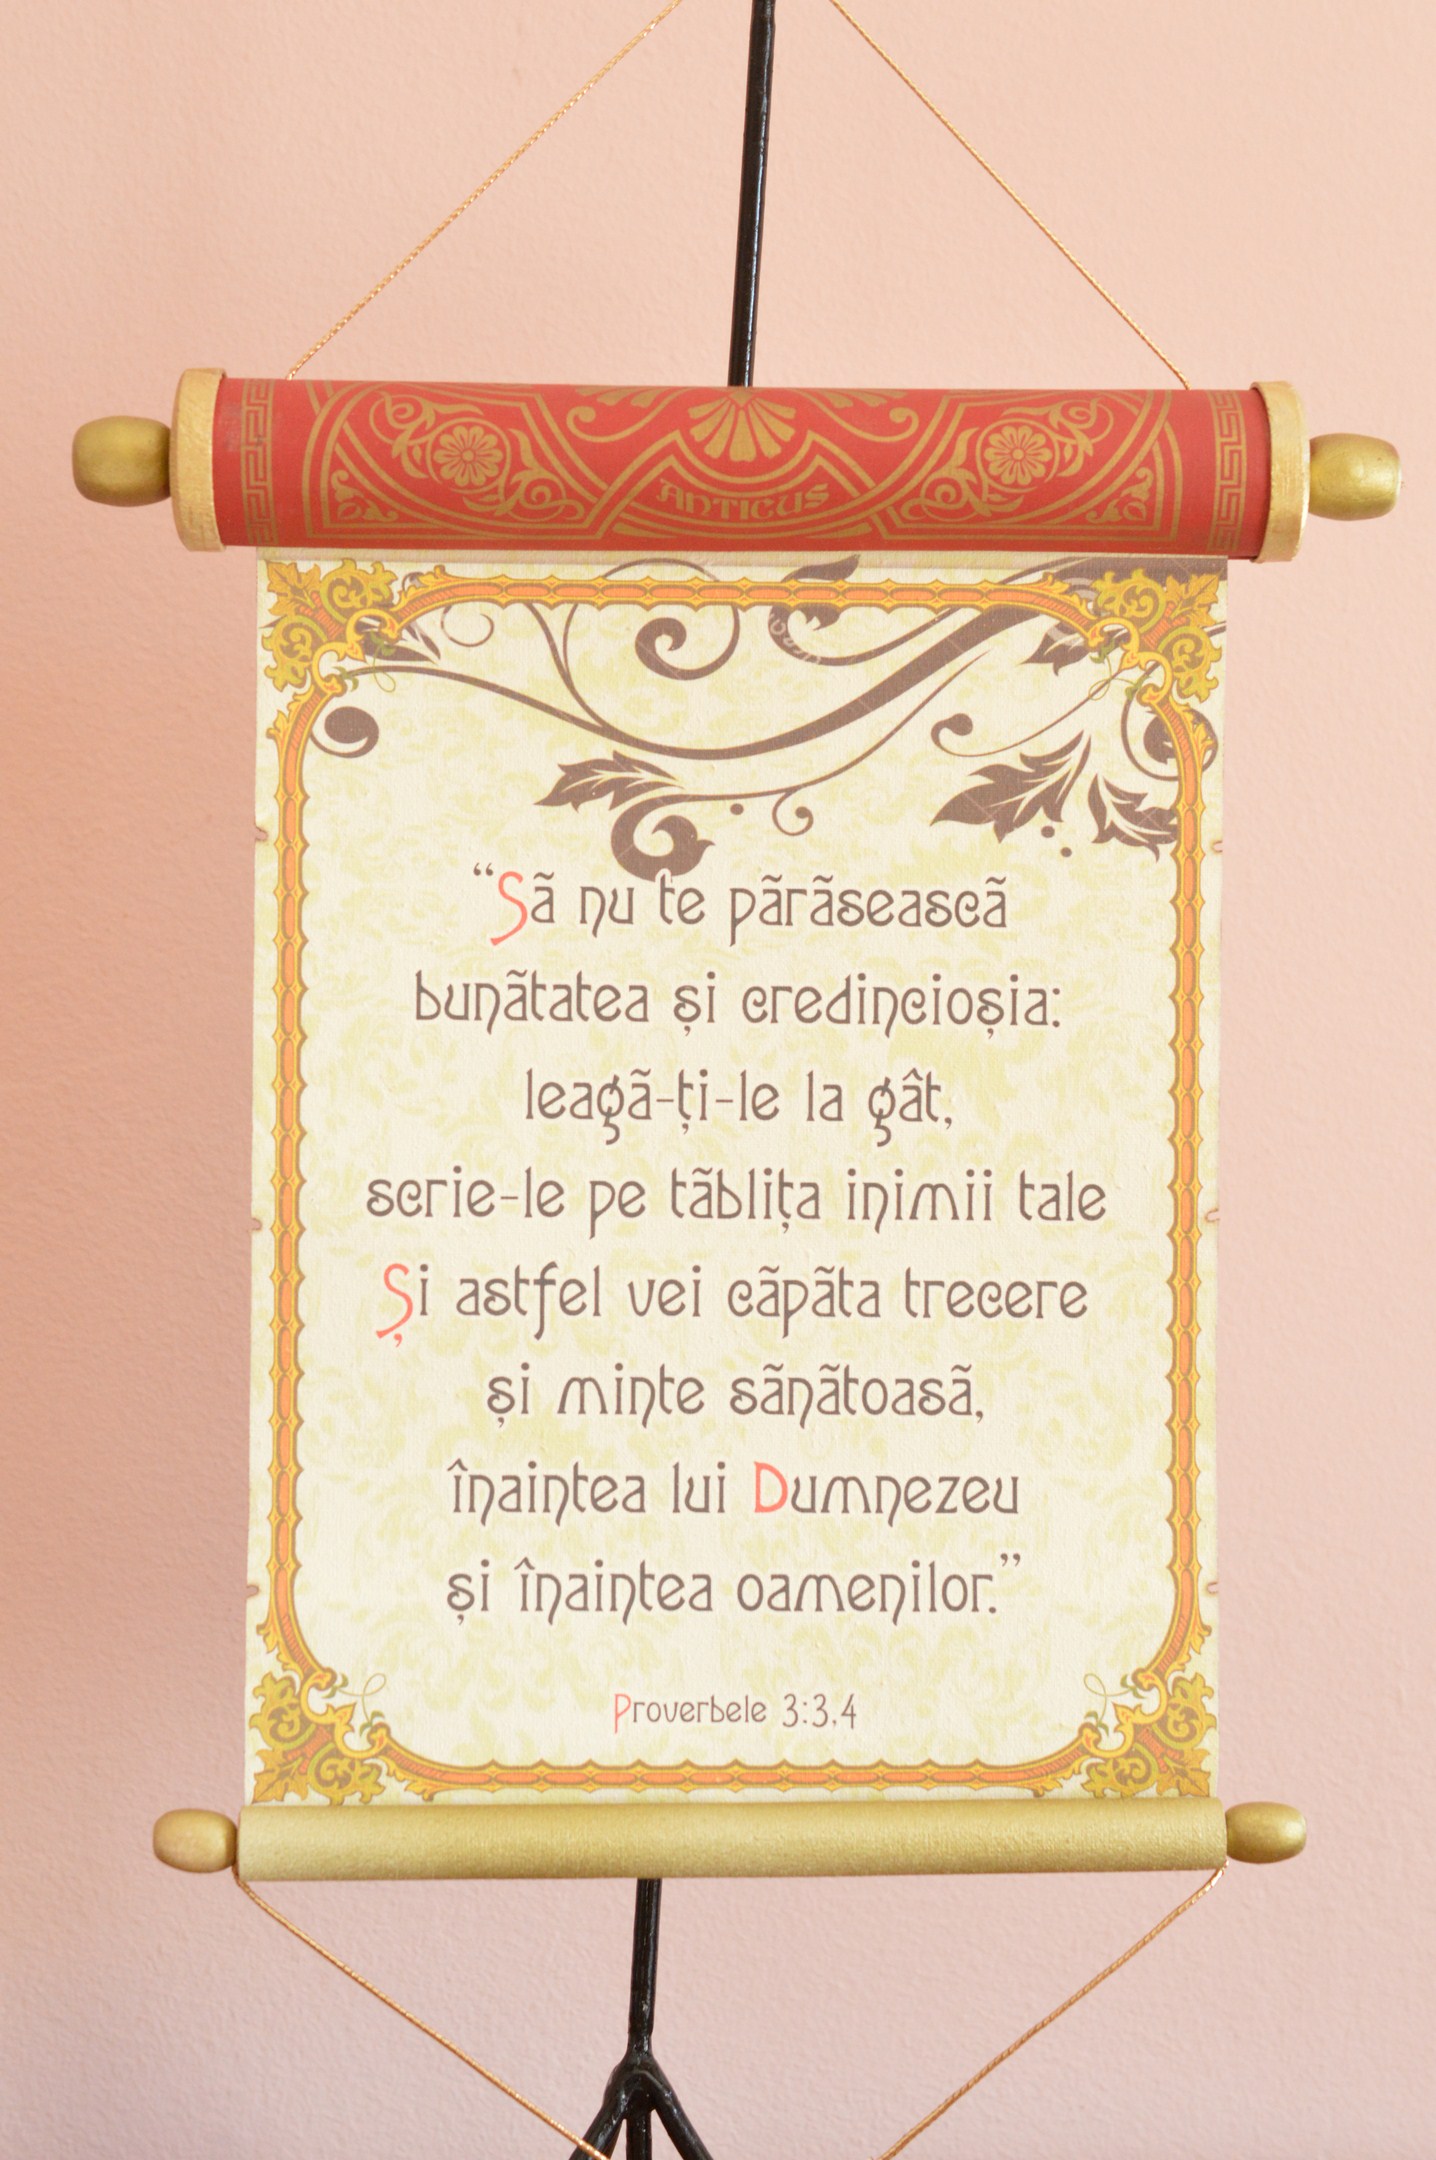 ANTICUS
“Sã nu te pãrãseascã
bunãtatea și credincioșia:
leagã-ți-le la gât,
scrie-le pe tãblița inimii tale
Și astfel vei cãpãta trecere
și minte sãnãtoasã,
înaintea lui Dumnezeu
și înaintea oamenilor.”
Proverbele 3:3,4